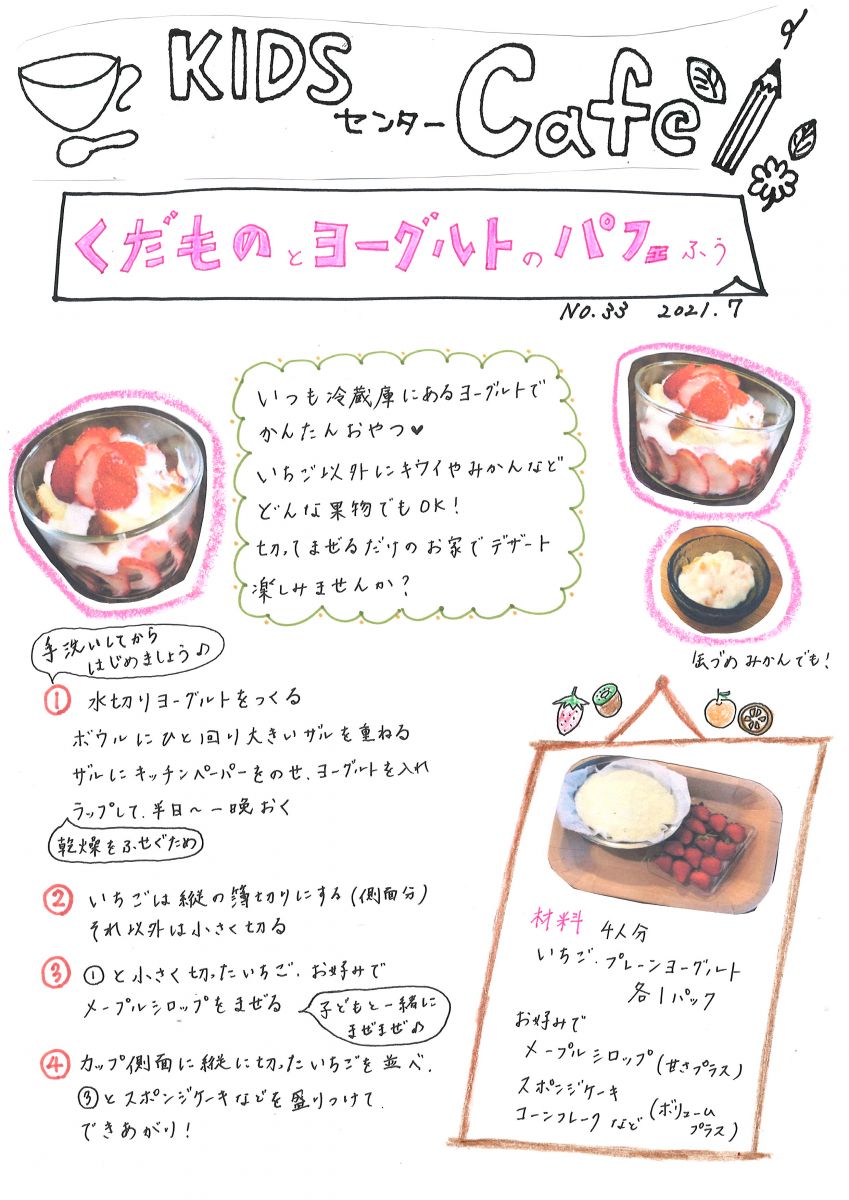 KIDS
センター Cafe
くだものとヨーグルトのパフェふう
NO.33 2021.7
いつも冷蔵庫にあるヨーグルトで
かんたんおやつ♥
いちご以外にキウイやみかんなど
どんな果物でもOK!
切ってまぜるだけのお家でデザート
楽しみませんか?
缶づめみかんでも!
手洗いしてから
はじめましょう♪
① 水切りヨーグルトをつくる
ボウルにひと回り大きいザルを重ねる
ザルにキッチンペーパーをのせ、ヨーグルトを入れ
ラップして、半日〜一晩おく
乾燥をふせぐため
② いちごは縦の薄切りにする(側面分)
それ以外は小さく切る
③ ①と小さく切ったいちご、お好みで
メープルシロップをまぜる
子どもと一緒に
まぜまぜ♪
④ カップ側面に縦に切ったいちごを並べ、
③とスポンジケーキなどを盛りつけて
できあがり!
材料 4人分
いちご、プレーンヨーグルト
各1パック
お好みで
メープルシロップ(甘さプラス)
スポンジケーキ
コーンフレークなど(ボリューム
プラス)